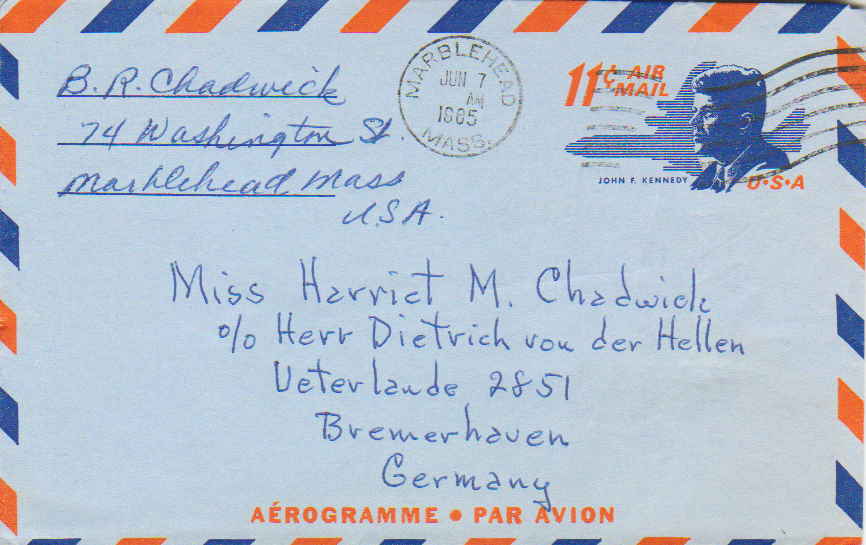 B. R. Chadwick
74 Washington St.
Marblehead Mass
U.S.A.
MARBLEHEAD
JUN 7
AM
1965
MASS.
11¢ AIR
MAIL
JOHN F. KENNEDY
U·S·A
Miss Harriet M. Chadwick
c/o Herr Dietrich von der Hellen
Ueterlande 2851
Bremerhaven
Germany
AÉROGRAMME • PAR AVION